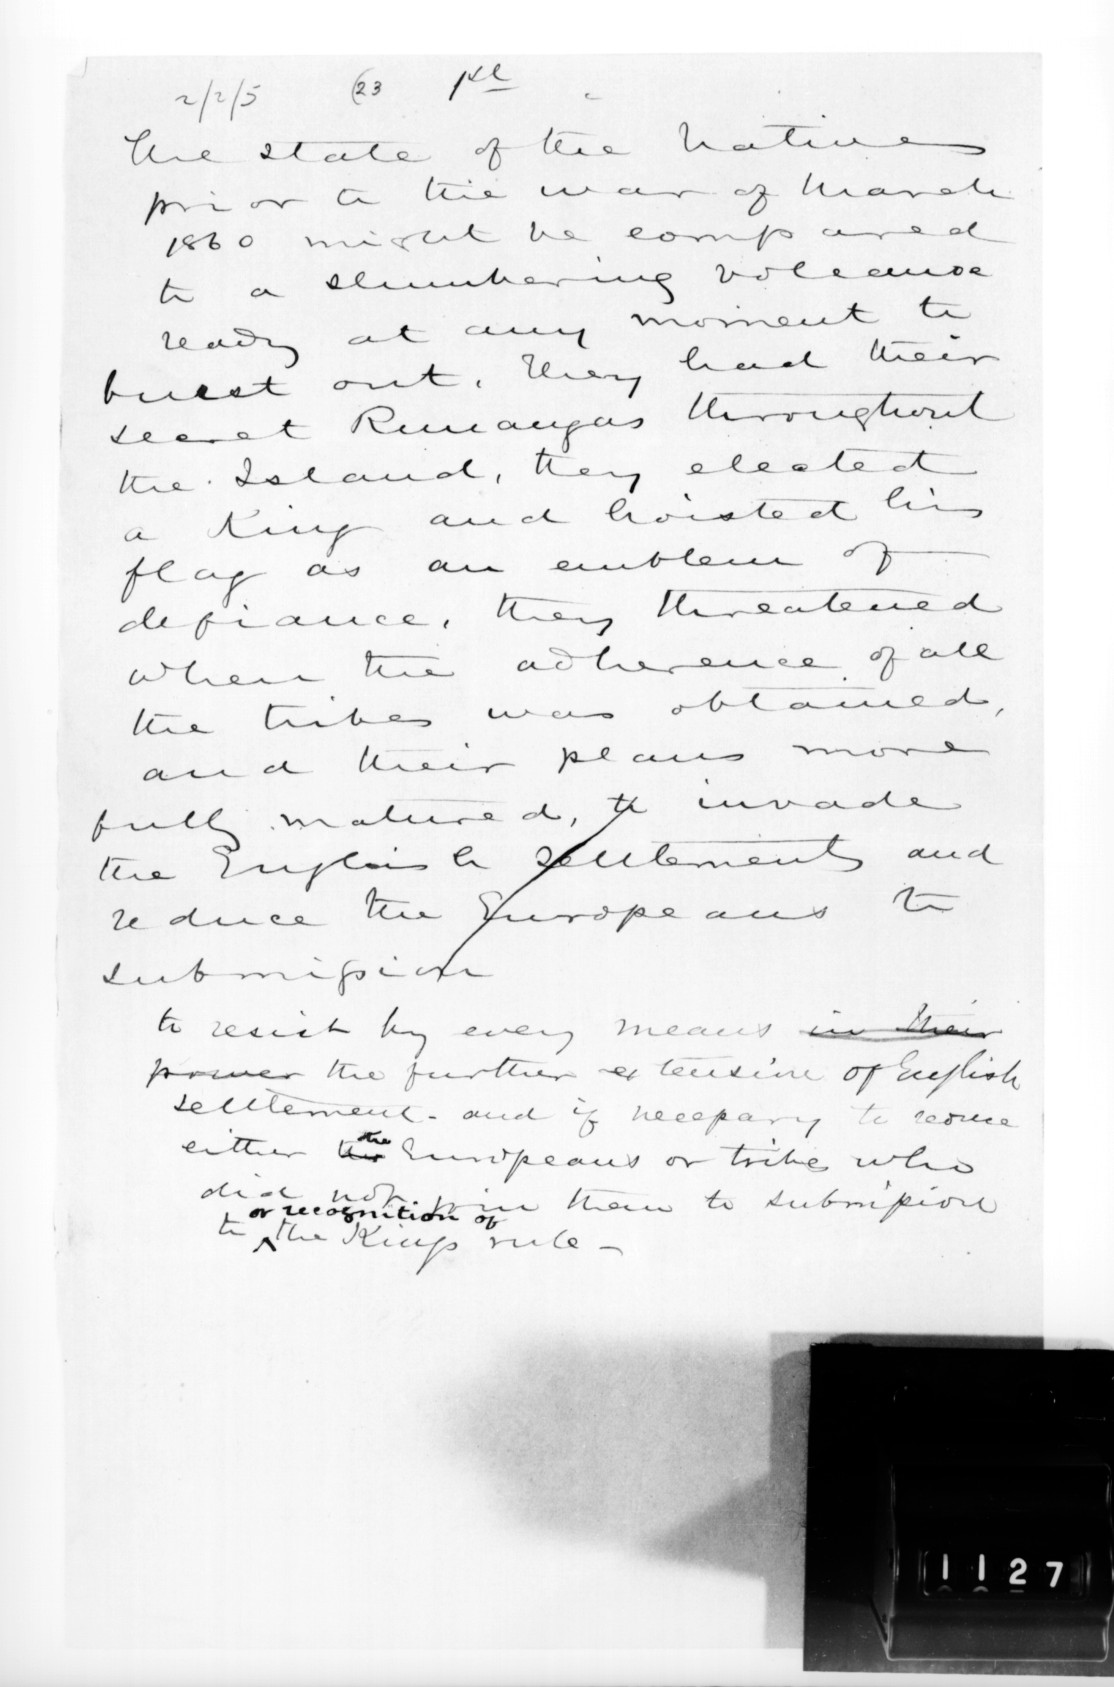 2/2/5 (23 1st
The state of the Natives
prior to the war of March
1860 might be compared
to a slumbering volcanoe
ready at any moment to
burst out. They had their
secret Runangas throughout
the Island, they elected
a King and hoisted his
flag as an emblem of
defiance, they threatened
when the adherence of all
the tribes was obtained,
and their plans more
fully matured, to invade
the English settlements and
reduce the Europeans to
submission
to resist by every means in their
power the further extension of English
settlement - and if necessary to reduce
either the the Europeans or tribes who
did not join them to submission
or recognition of
to ^ the Kings rule -
1127